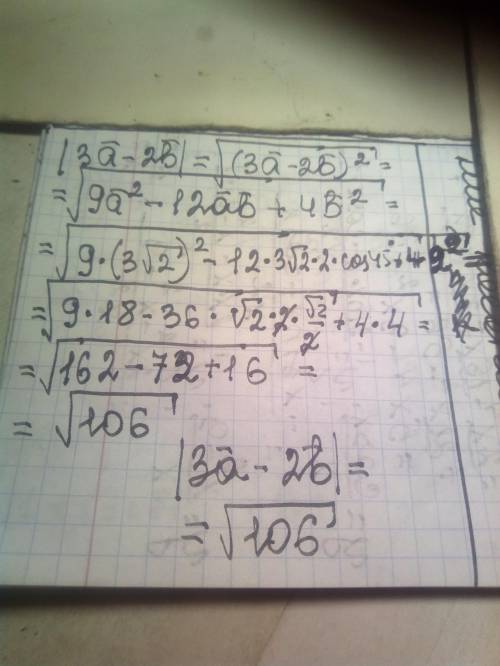 |3a̅ - 2b̅| = √(3a̅ - 2b̅)² =
= √9a̅² - 12a̅b̅ + 4b̅² =
= √9·(3√2)² - 12·3√2·2·cos45° + 4·2² =
= √9·18 - 36·√2·2·√2/2 + 4·4 =
= √162 - 72 + 16 =
= √106
|3a̅ - 2b̅| =
= √106